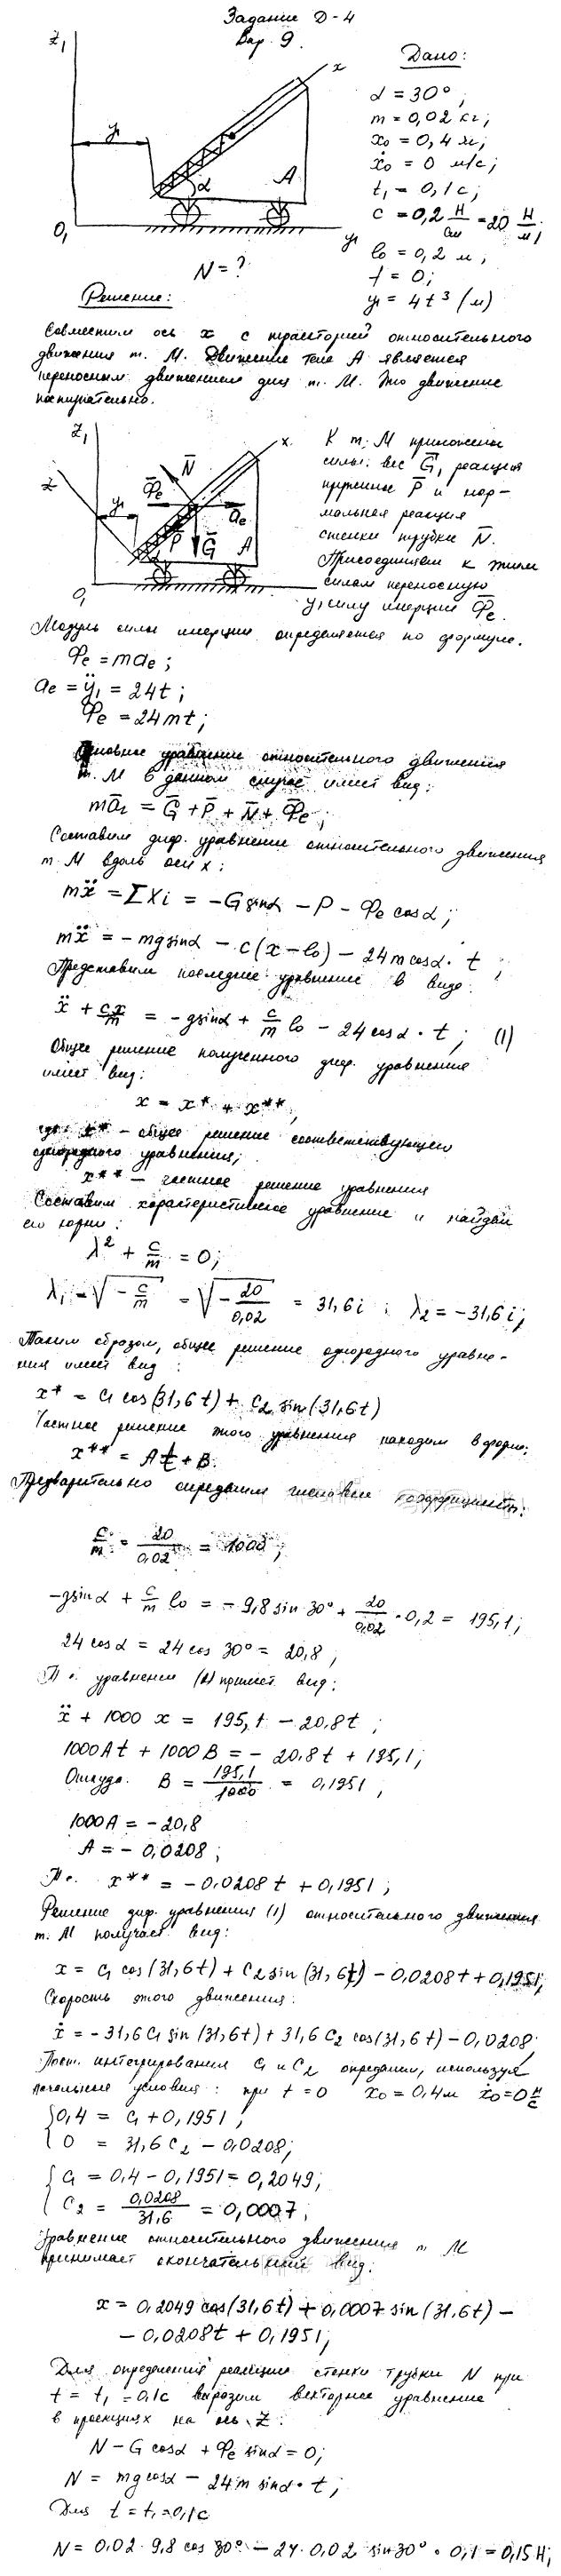 Задание Д-4
Вар. 9.
Z₁
x
y₁
α
A
O₁
y₁
Дано:
α = 30°;
m = 0,02 кг;
x₀ = 0,4 м;
ẋ₀ = 0 м/с;
t₁ = 0,1 с;
c = 0,2 Н/см = 20 Н/м;
l₀ = 0,2 м;
f = 0;
y₁ = 4t³ (м)
N = ?
Решение:
Совместим ось x с траекторией относительного
движения т. М. Движение тела А является
переносным движением для т. М. Это движение
поступательно.
Z₁
x
Z
N̄
Φ̄e
āe
y₁
P̄
Ḡ
A
O₁
y₁
К т. М приложены
силы: вес Ḡ, реакция
пружины P̄ и нор-
мальная реакция
стенки трубки N̄.
Присоединяем к этим
силам переносную
силу инерции Φ̄e.
Модуль силы инерции определяется по формуле.
Φe = mae;
ae = ÿ₁ = 24t;
Φe = 24mt;
Основное уравнение относительного движения
т. М в данном случае имеет вид:
mār = Ḡ + P̄ + N̄ + Φ̄e;
Составим диф. уравнение относительного движения
т. М вдоль оси x:
mẍ = ΣXi = -G sinα - P - Φe cosα;
mẍ = -mg sinα - c(x - l₀) - 24m cosα · t;
Представим последнее уравнение в виде:
ẍ + cx/m = -g sinα + c/m l₀ - 24 cosα · t; (1)
Общее решение полученного диф. уравнения
имеет вид:
x = x* + x**,
где x* - общее решение соответствующего
однородного уравнения;
x** - частное решение уравнения
Составим характеристическое уравнение и найдем
его корни:
λ² + c/m = 0;
λ₁ = √(-c/m) = √(-20/0,02) = 31,6i; λ₂ = -31,6i;
Таким образом, общее решение однородного уравне-
ния имеет вид:
x* = C₁ cos(31,6t) + C₂ sin(31,6t)
Частное решение этого уравнения находим в форме:
x** = At + B.
Предварительно определим числовые коэффициенты:
c/m = 20/0,02 = 1000;
-g sinα + c/m l₀ = -9,8 sin 30° + 20/0,02 · 0,2 = 195,1;
24 cosα = 24 cos 30° = 20,8;
Т.о. уравнение (1) примет вид:
ẍ + 1000 x = 195,1 - 20,8t;
1000At + 1000B = -20,8t + 195,1;
Откуда B = 195,1/1000 = 0,1951;
1000A = -20,8
A = -0,0208;
Т.о. x** = -0,0208t + 0,1951;
Решение диф. уравнения (1) относительного движения
т. М получает вид:
x = C₁ cos(31,6t) + C₂ sin(31,6t) - 0,0208t + 0,1951;
Скорость этого движения:
ẋ = -31,6C₁ sin(31,6t) + 31,6C₂ cos(31,6t) - 0,0208;
Пост. интегрирования C₁ и C₂ определим, используя
начальные условия: при t = 0 x₀ = 0,4 м ẋ₀ = 0 м/с
{0,4 = C₁ + 0,1951;
{0 = 31,6C₂ - 0,0208;
{C₁ = 0,4 - 0,1951 = 0,2049;
{C₂ = 0,0208/31,6 = 0,0007;
Уравнение относительного движения т. М
принимает окончательный вид:
x = 0,2049 cos(31,6t) + 0,0007 sin(31,6t) -
- 0,0208t + 0,1951;
Для определения реакции стенки трубки N при
t = t₁ = 0,1с выразим векторное уравнение
в проекциях на ось Z:
N - G cosα + Φe sinα = 0;
N = mg cosα - 24m sinα · t;
Для t = t₁ = 0,1с
N = 0,02 · 9,8 cos 30° - 24 · 0,02 sin 30° · 0,1 = 0,15 Н;